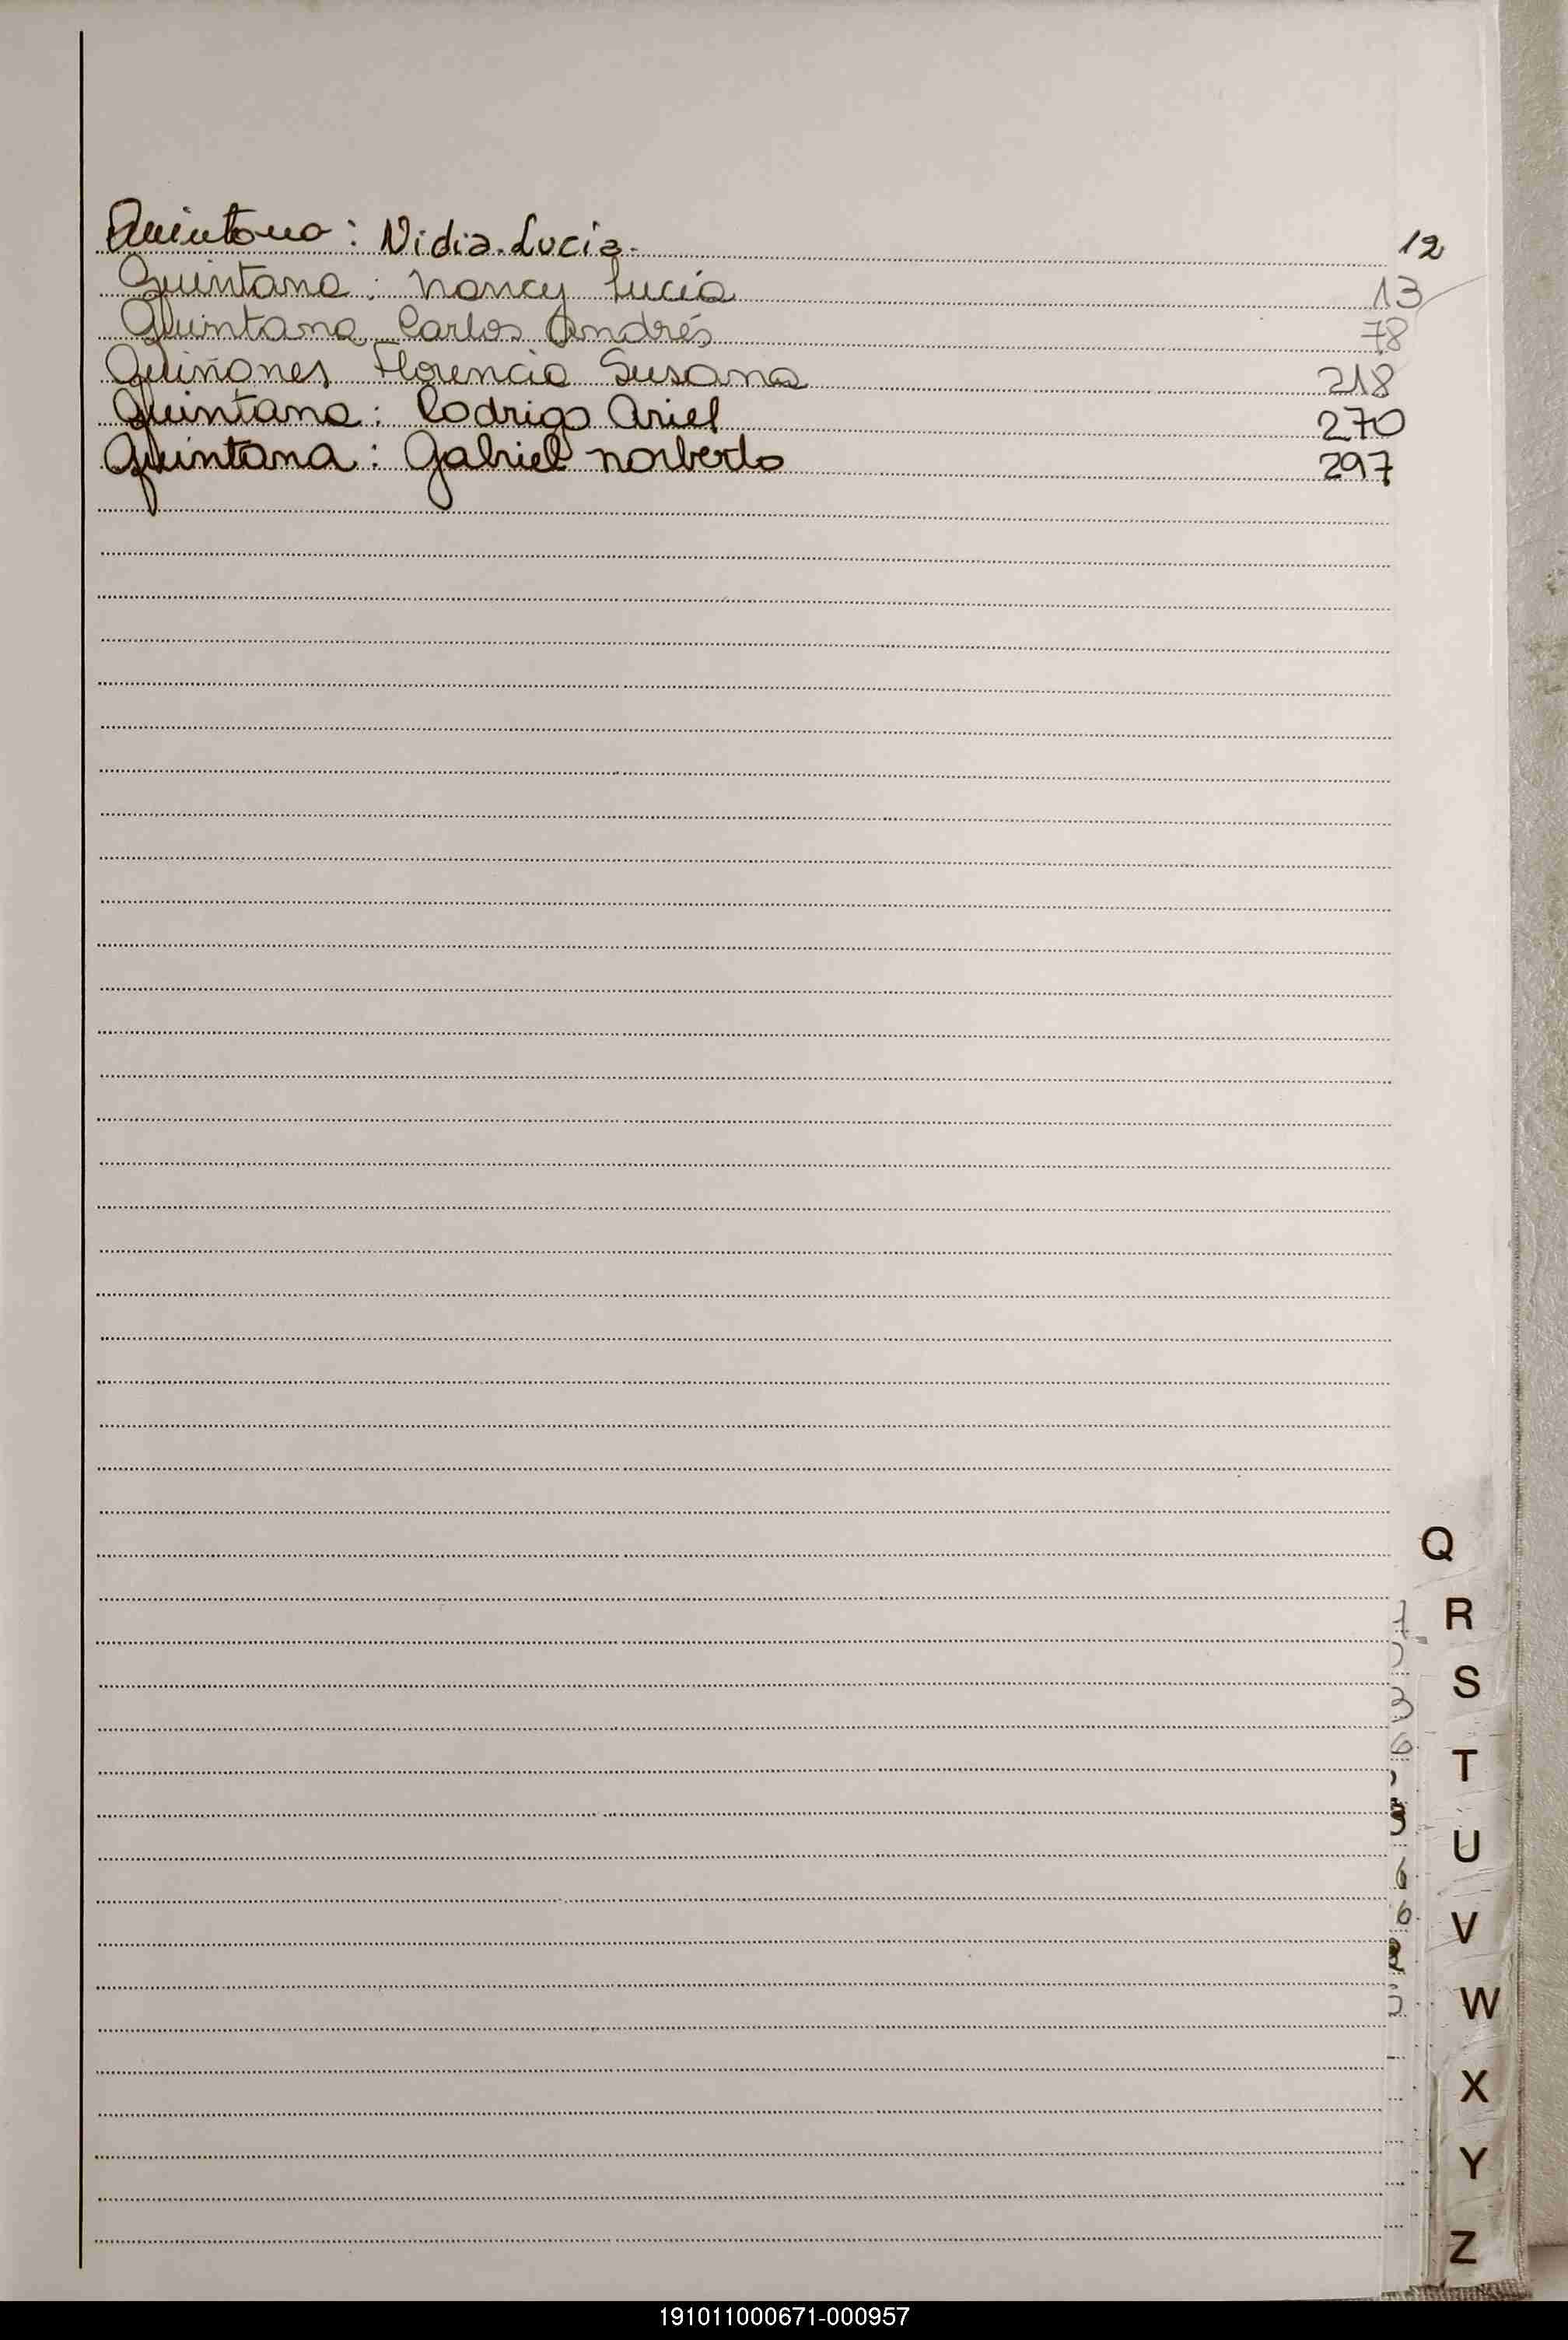 Quintana: Nidia Lucia. 12
Quintana: Nancy Lucia 13
Quintana Carlos Andrés 78
Quiñones Florencia Susana 218
Quintana: Rodrigo Ariel 270
Quintana: Gabriel Norberto 297
Q
R
S
T
U
V
W
X
Y
Z
191011000671-000957